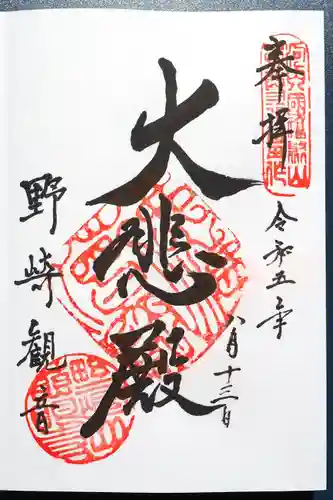 奉拝
令和五年
八月十三日
大悲殿
野崎観音